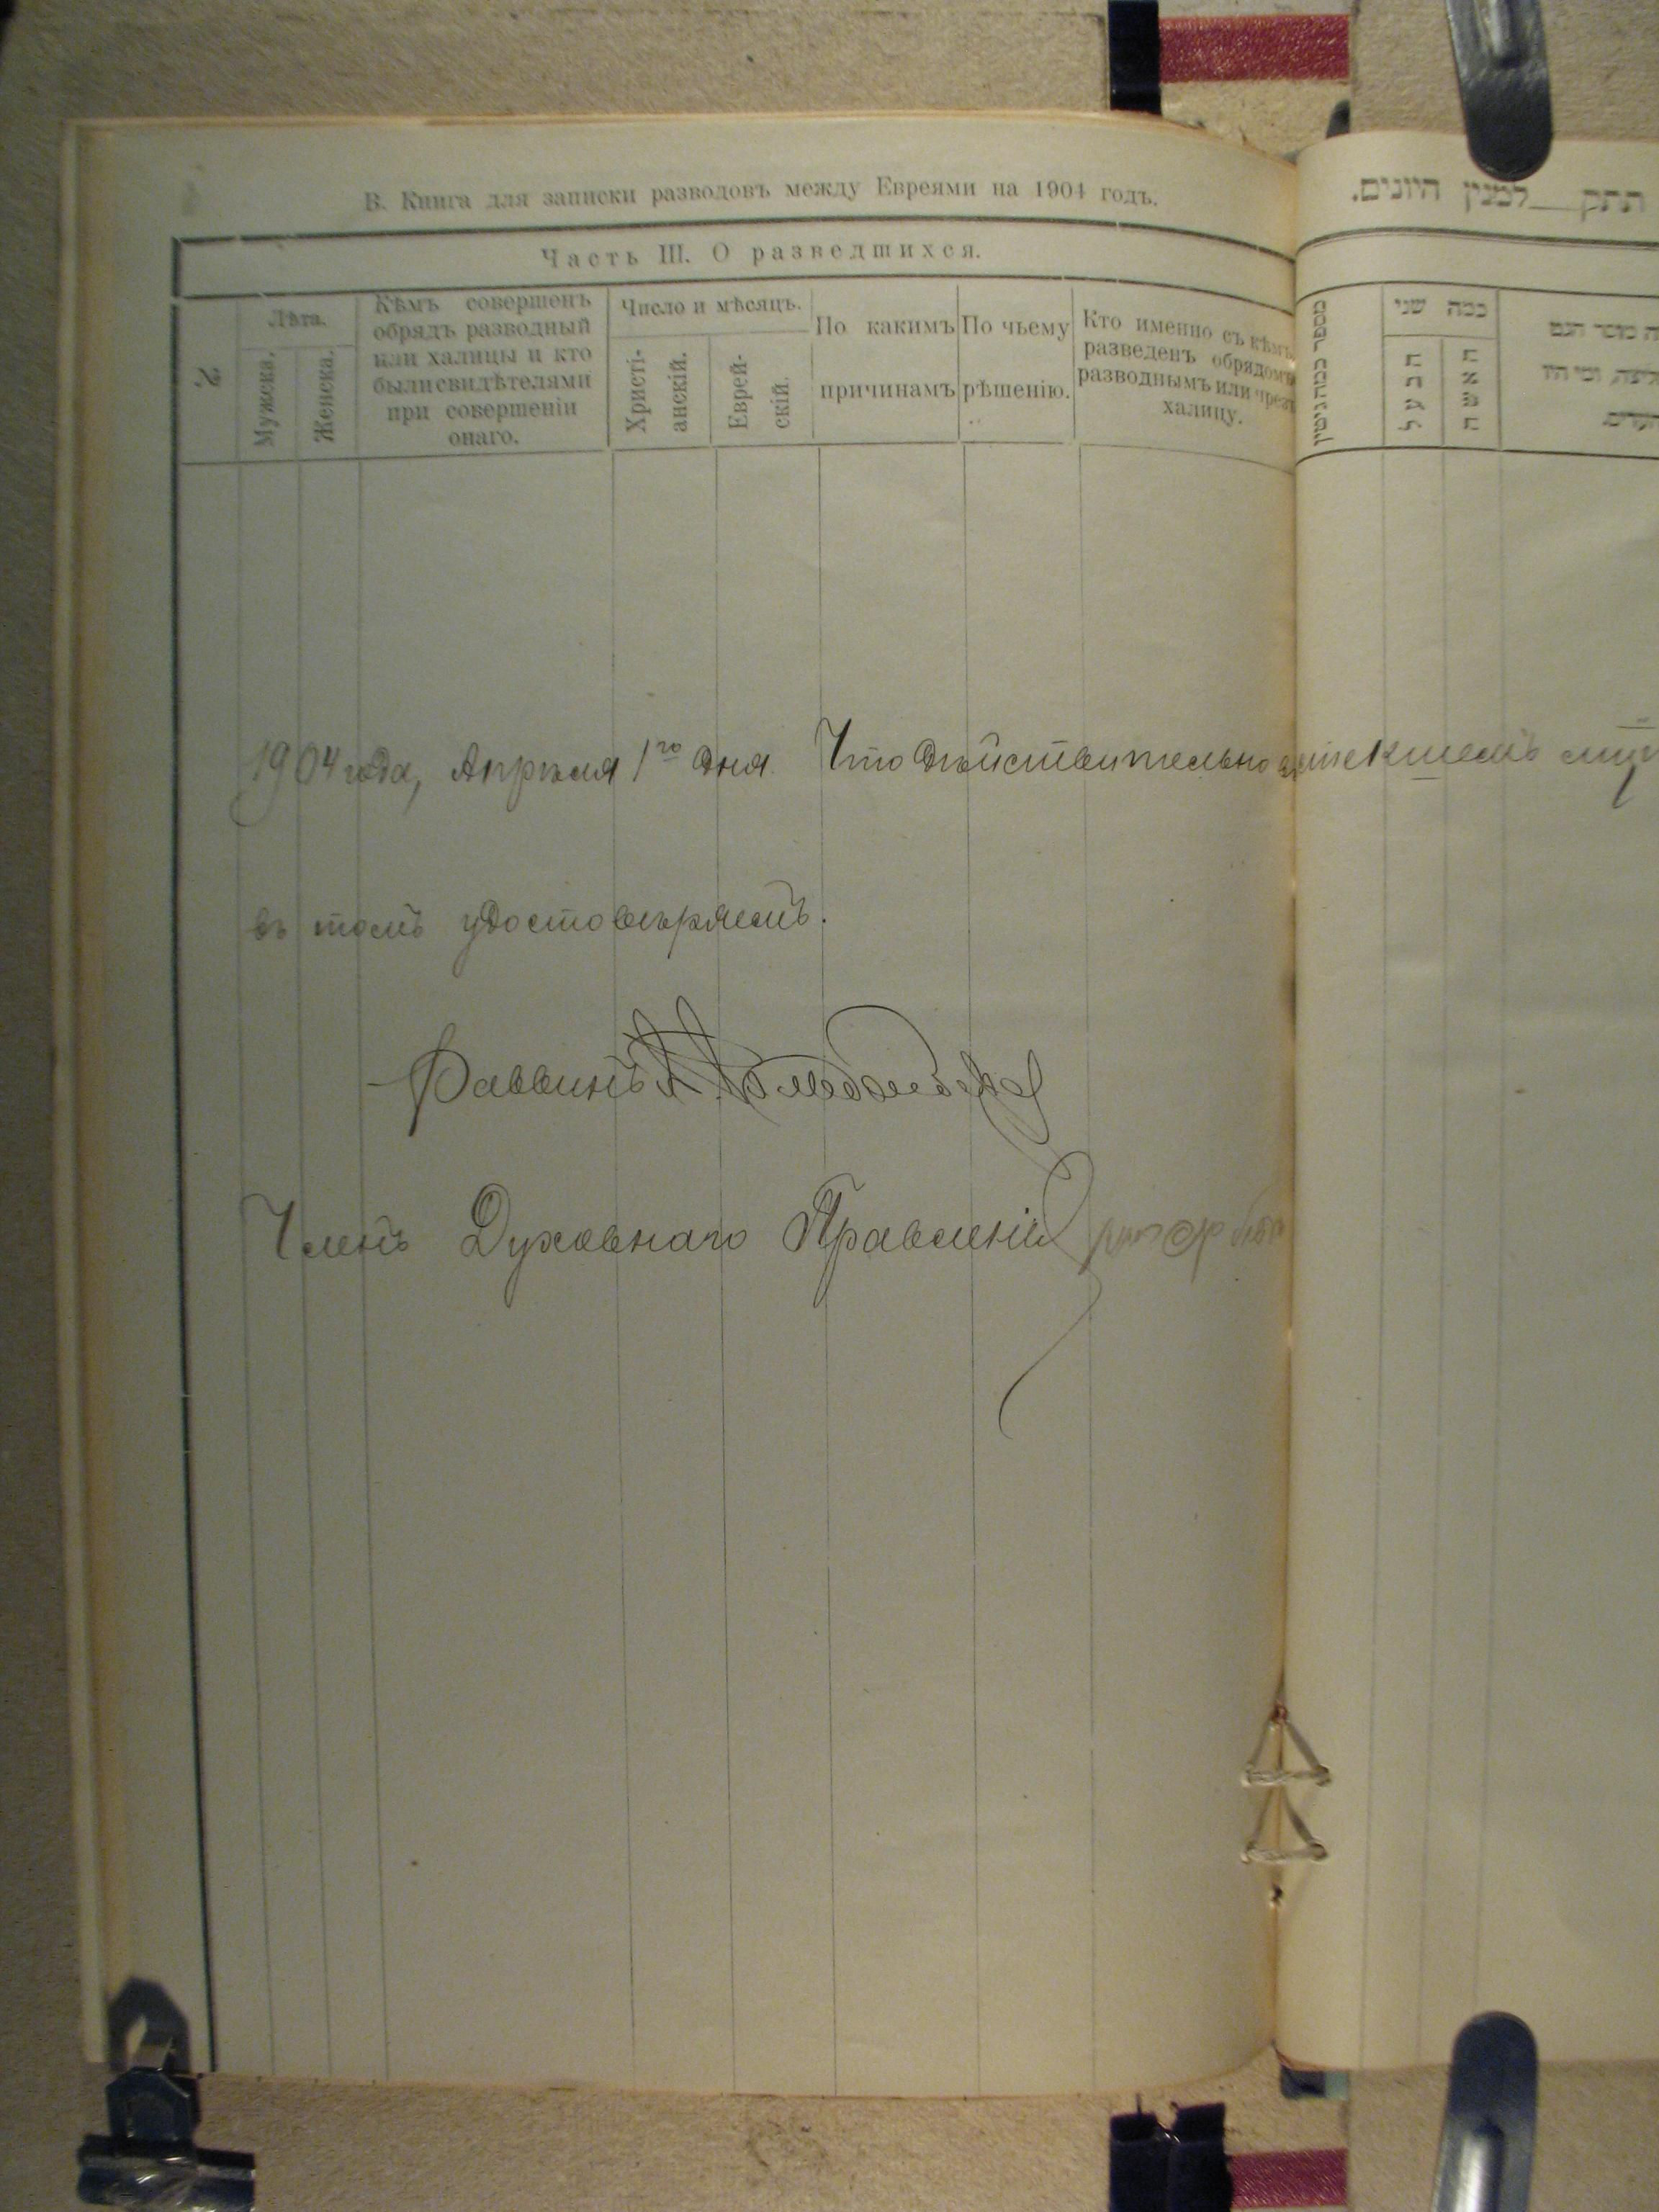 В. Книга для записки разводовъ между Евреями на 1904 годъ.
Часть III. О разведшихся.
№
Лѣта.
Мужеска.
Женска.
Кѣмъ совершенъ
обрядъ разводный
или халицы и кто
были свидѣтелями
при совершеніи
онаго.
Число и мѣсяцъ.
Христі-
анскій.
Еврей-
скій.
По какимъ
причинамъ
По чьему
рѣшенію.
Кто именно съ кѣмъ
разведенъ обрядомъ
разводнымъ или чрезъ
халицу.
1904 года, Апрѣля 1го дня. Что дѣйствительно въ текшемъ
въ томъ удостовѣряемъ.
Раввинъ
Членъ Духовнаго Правленія
תתק__למנין היונים.
מספר כמה גיטין
כמה שני
הבעל
האשה